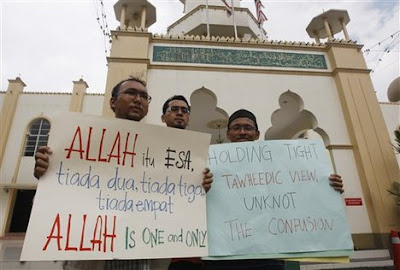 ALLAH itu ESA,
tiada dua, tiada tiga
tiada empat
ALLAH is ONE and ONLY
HOLDING TIGHT
TAWHEEDIC VIEW,
UNKNOT
THE CONFUSION